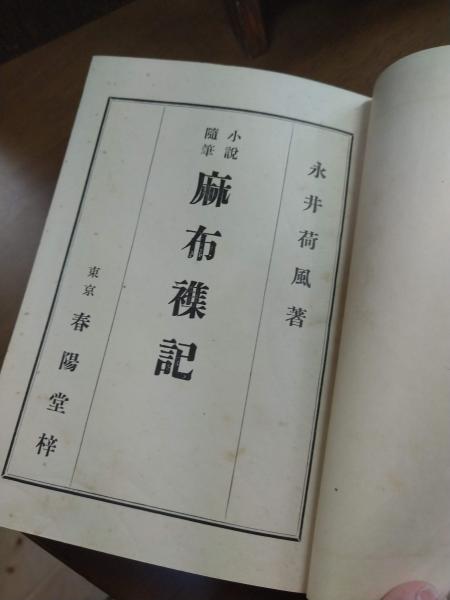 永井荷風著
小說
隨筆
麻布襍記
東京 春陽堂梓